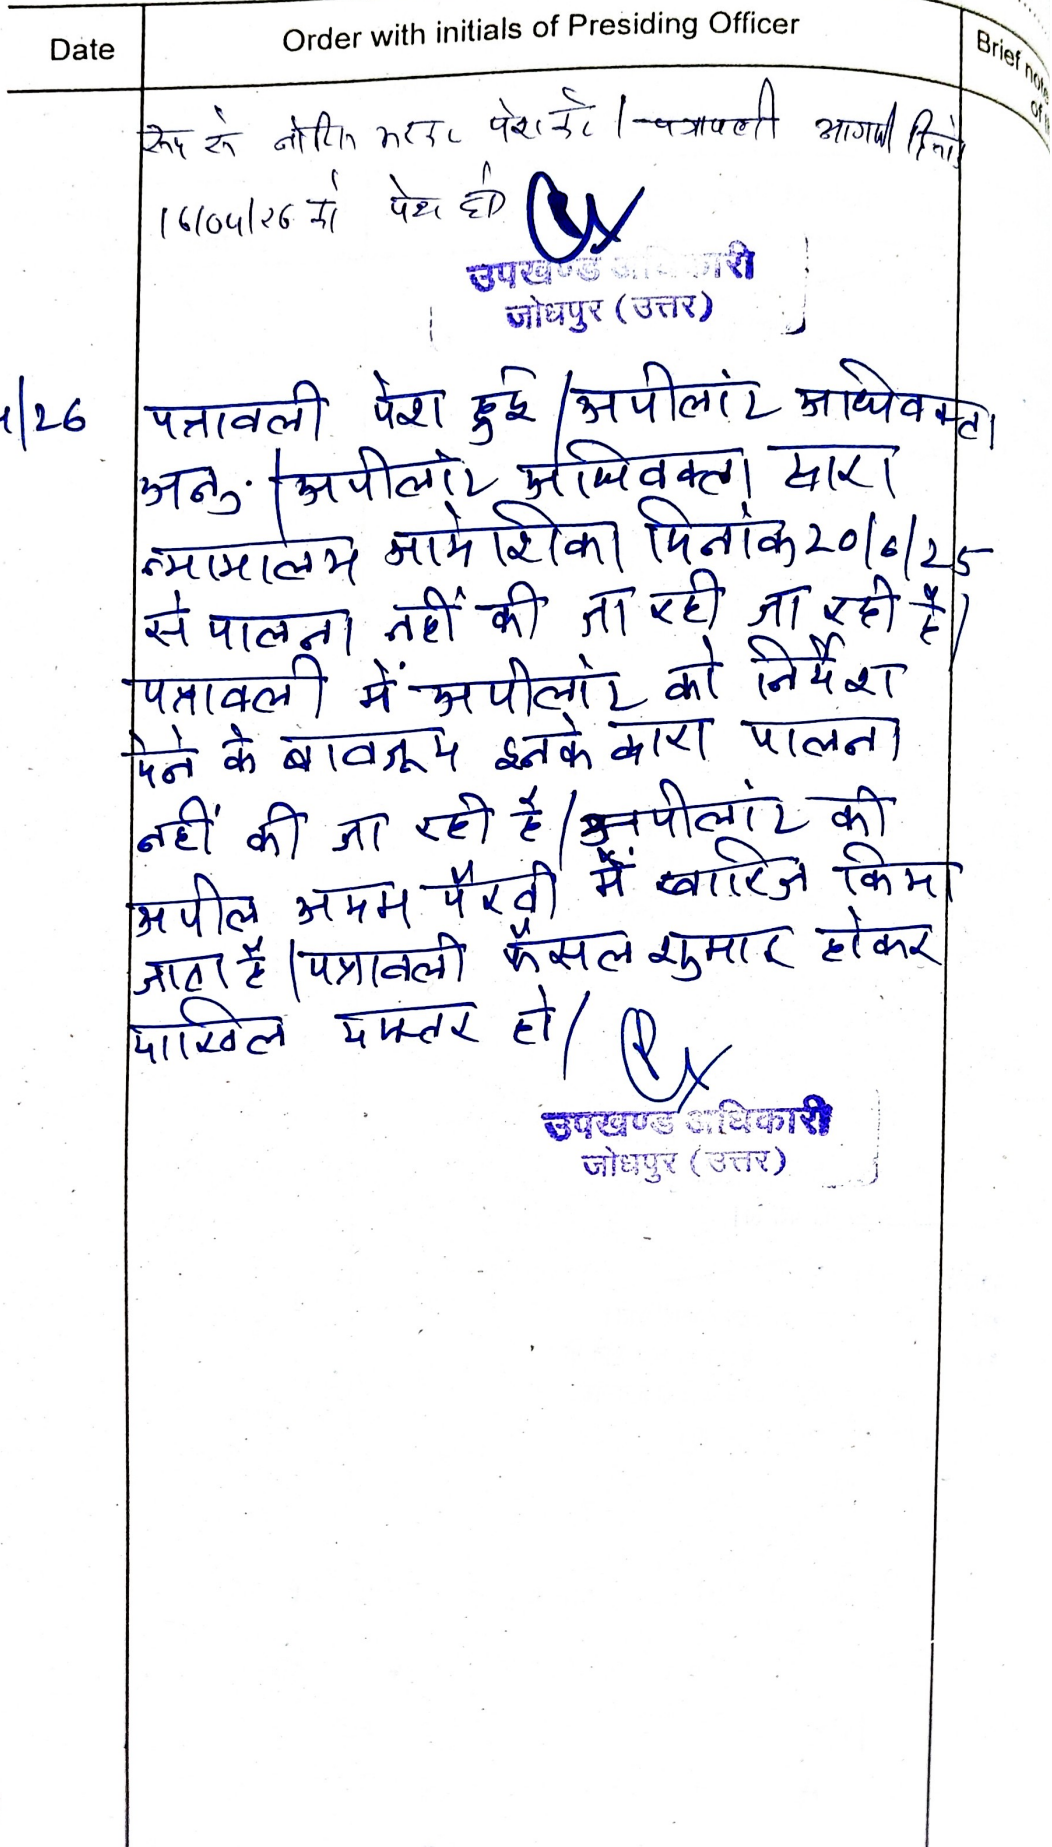 Date
Order with initials of Presiding Officer
Brief note
of
के नोटिस भरकर पेश करे | पत्रावली आगामी दिनांक
16/04/26 को पेश हो
उपखण्ड अधिकारी
जोधपुर (उत्तर)
/26 पत्रावली पेश हुई | अपीलांट अधिवक्ता
अनु. | अपीलांट अधिवक्ता द्वारा
न्यायालय आदेशिका दिनांक 20/6/25
से पालना नहीं की जा रही जा रही है |
पत्रावली में अपीलांट को निर्देश
देने के बावजूद इनके द्वारा पालना
नहीं की जा रही है | अपीलांट की
अपील अदम पैरवी में खारिज किया
जाता है | पत्रावली फैसल शुमार होकर
दाखिल दफ्तर हो |
उपखण्ड अधिकारी
जोधपुर (उत्तर)